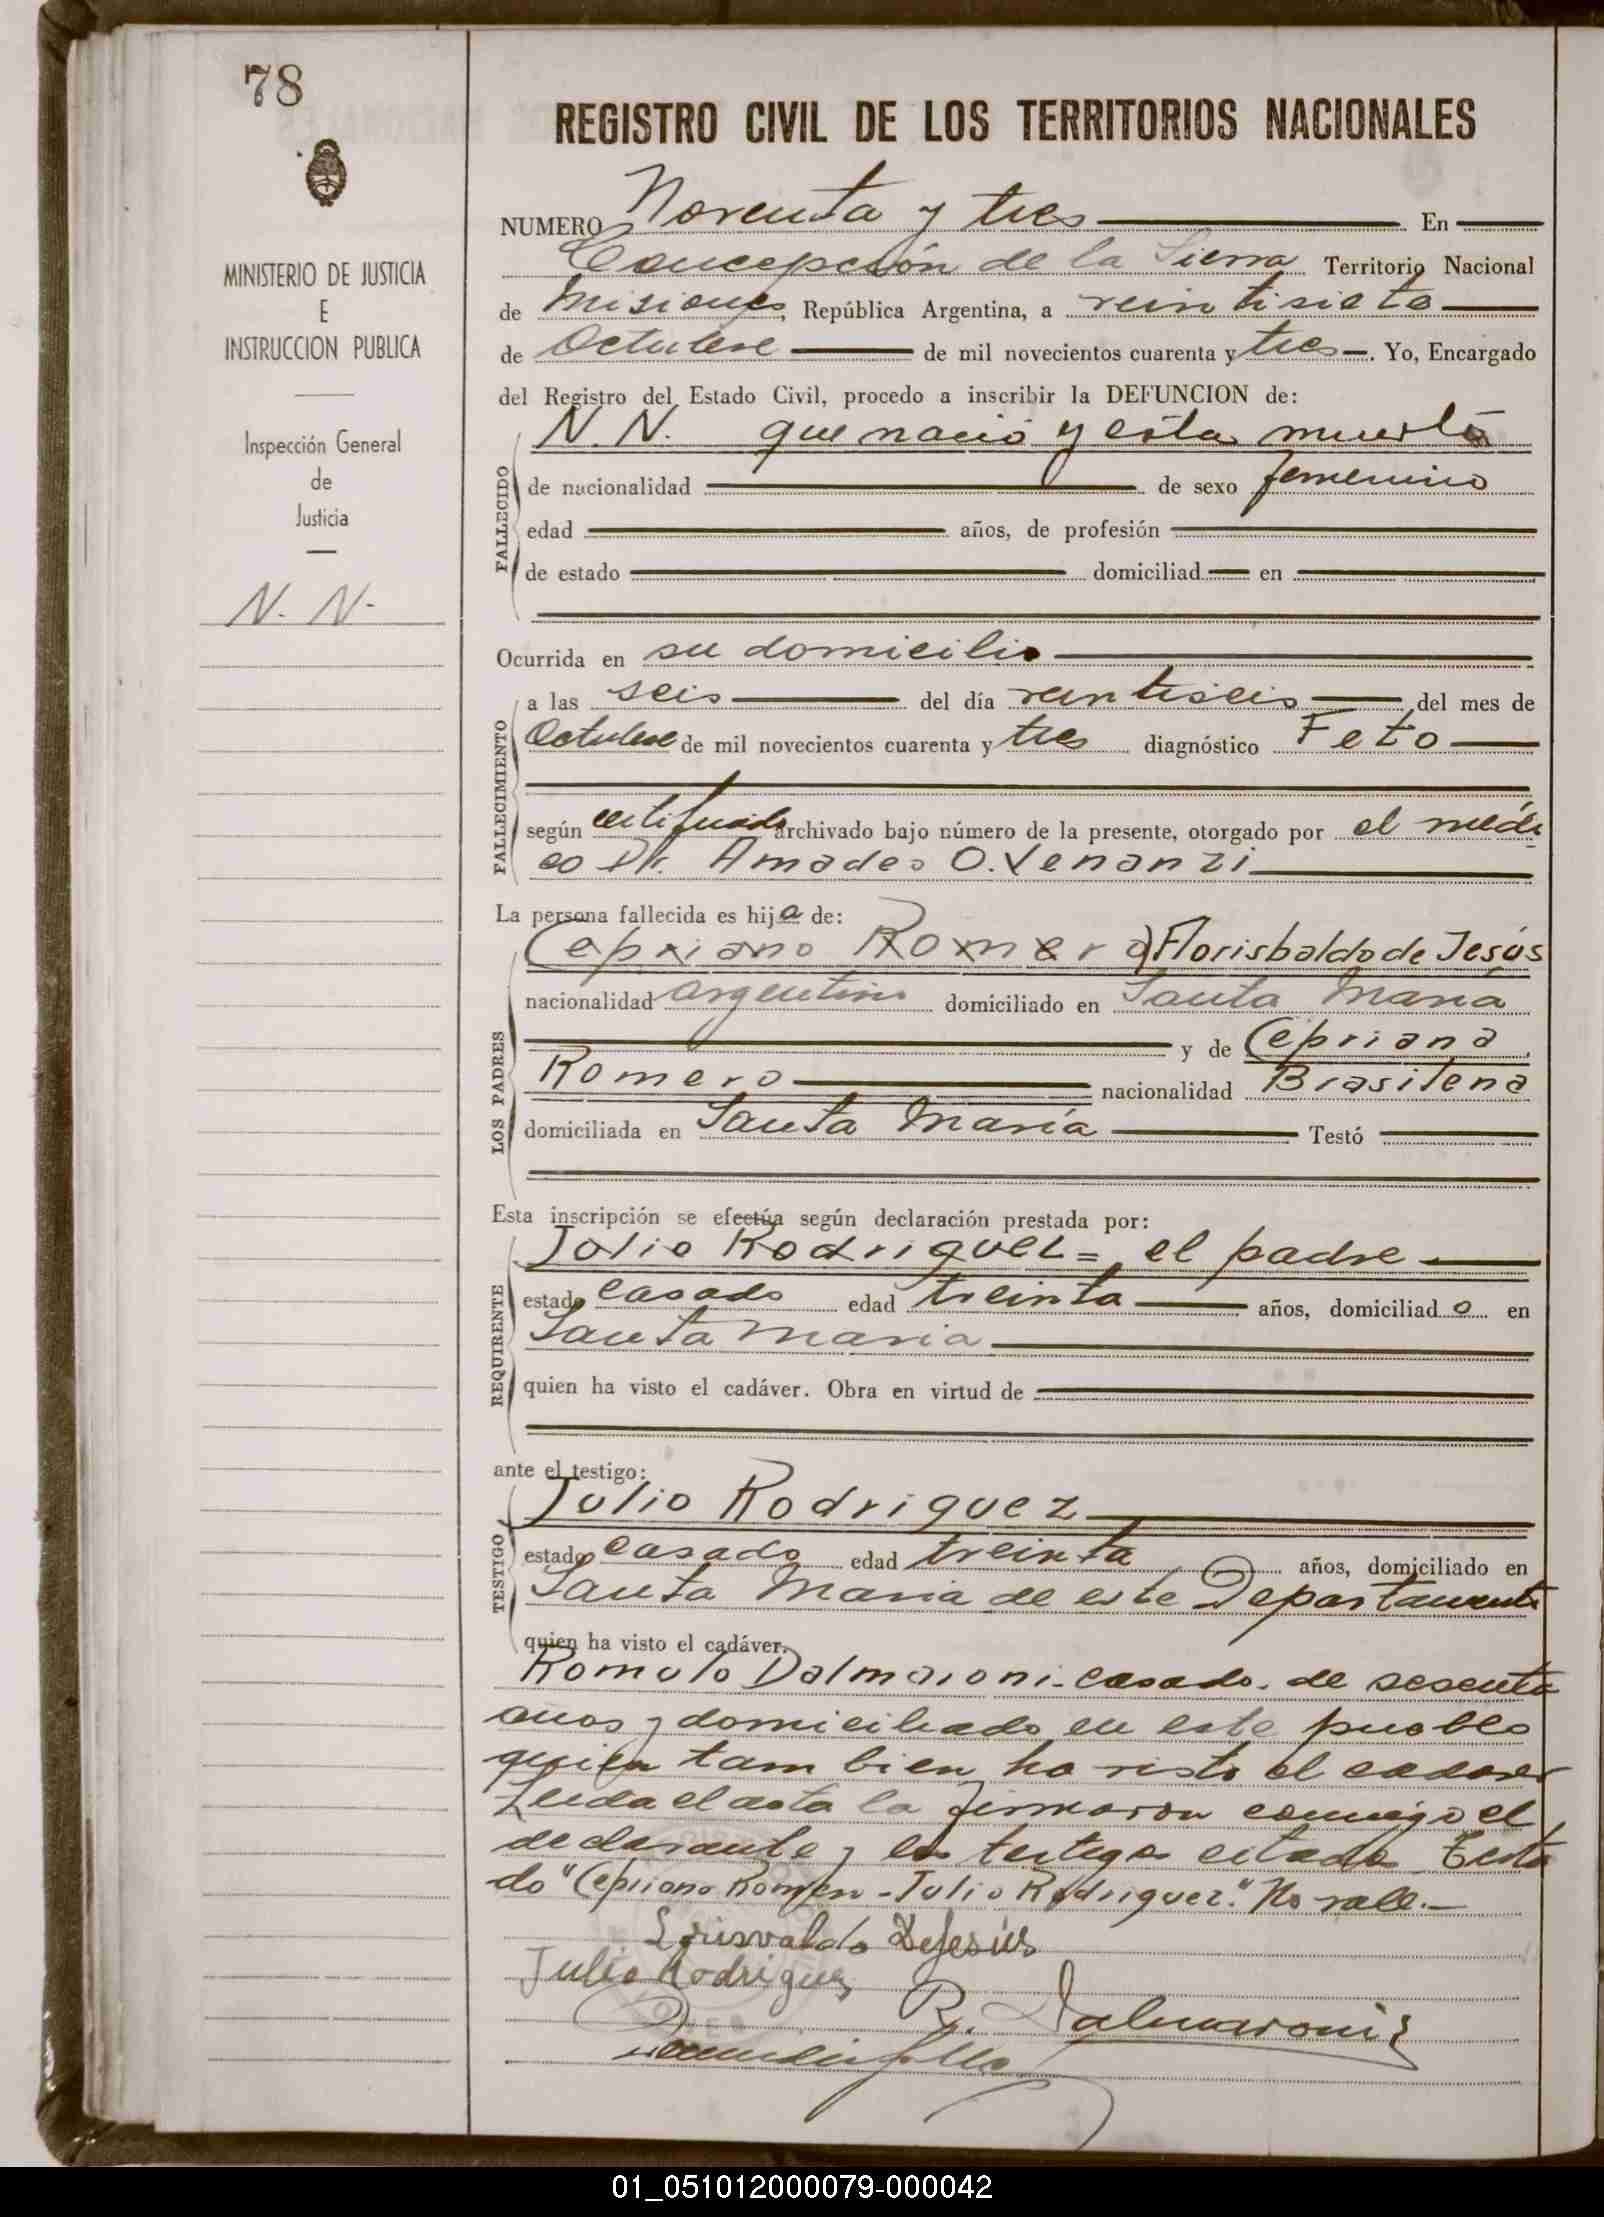 78
REGISTRO CIVIL DE LOS TERRITORIOS NACIONALES
NUMERO Noventa y tres En
Concepción de la Sierra Territorio Nacional
MINISTERIO DE JUSTICIA
E
INSTRUCCION PUBLICA
de Misiones, República Argentina, a veintisiete
de Octubre de mil novecientos cuarenta y tres. Yo, Encargado
del Registro del Estado Civil, procedo a inscribir la DEFUNCION de:
Inspección General
de
Justicia
N. N.
FALLECIDO
N. N. que nació y esta muerta
de nacionalidad de sexo femenino
edad años, de profesión
de estado domiciliad en
Ocurrida en su domicilio
FALLECIMIENTO
a las seis del día veintiseis del mes de
Octubre de mil novecientos cuarenta y tres diagnóstico Feto
según certificado archivado bajo número de la presente, otorgado por el médi
co Dr. Amadeo O. Venanzi
La persona fallecida es hija de:
LOS PADRES
Cepriano Romero) Florisbaldo de Jesús
nacionalidad argentino domiciliado en Santa Maria
y de Cepriana
Romero nacionalidad Brasilena
domiciliada en Santa María Testó
Esta inscripción se efectúa según declaración prestada por:
REQUIRENTE
Julio Rodriguez = el padre
estado casado edad treinta años, domiciliado en
Santa Maria
quien ha visto el cadáver. Obra en virtud de
ante el testigo:
TESTIGO
Julio Rodriguez
estado casado edad treinta años, domiciliado en
Santa Maria de este Departamento
quien ha visto el cadáver.
Romulo Dalmaroni - casado - de sesenta
anos y domiciliado en este pueblo
quien tambien ha visto el cadaver
Leida el acta la firmaron conmigo el
declarante y los testigos citados Testa
do "Cepriano Romero - Julio Rodriguez" No vale.-
Lrisvaldo DeJesús
Julio Rodriguez
R. Dalmaroni
01_051012000079-000042